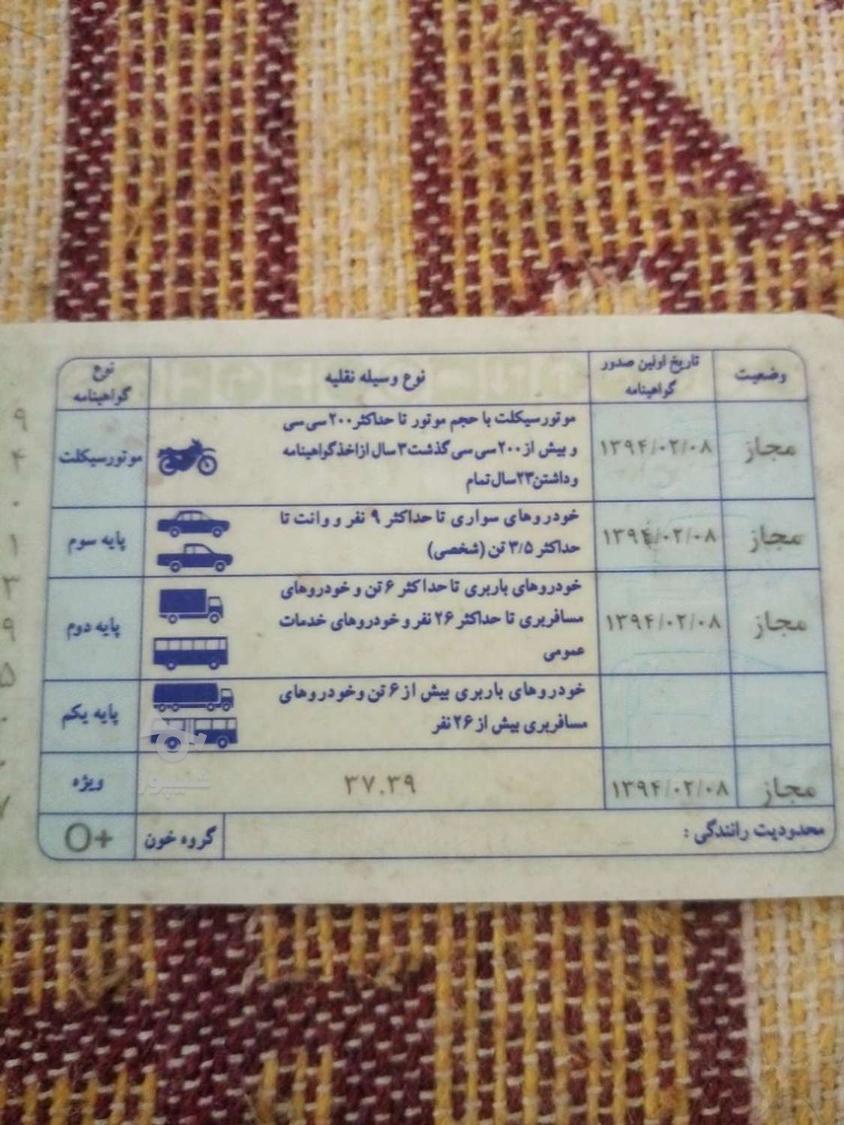 وضعیت
تاریخ اولین صدور
گواهینامه
نوع وسیله نقلیه
نوع
گواهینامه
مجاز
۱۳۹۴/۰۲/۰۸
موتورسیکلت با حجم موتور تا حداکثر ۲۰۰ سی سی
و بیش از ۲۰۰ سی سی گذشت ۳ سال از اخذ گواهینامه
و داشتن ۲۳ سال تمام
موتورسیکلت
مجاز
۱۳۹۴/۰۲/۰۸
خودروهای سواری تا حداکثر ۹ نفر و وانت تا
حداکثر ۳/۵ تن (شخصی)
پایه سوم
مجاز
۱۳۹۴/۰۲/۰۸
خودروهای باربری تا حداکثر ۶ تن و خودروهای
مسافربری تا حداکثر ۲۶ نفر و خودروهای خدمات
عمومی
پایه دوم
خودروهای باربری بیش از ۶ تن و خودروهای
مسافربری بیش از ۲۶ نفر
پایه یکم
مجاز
۱۳۹۴/۰۲/۰۸
۳۷.۳۹
ویژه
محدودیت رانندگی :
گروه خون
O+
شیپور